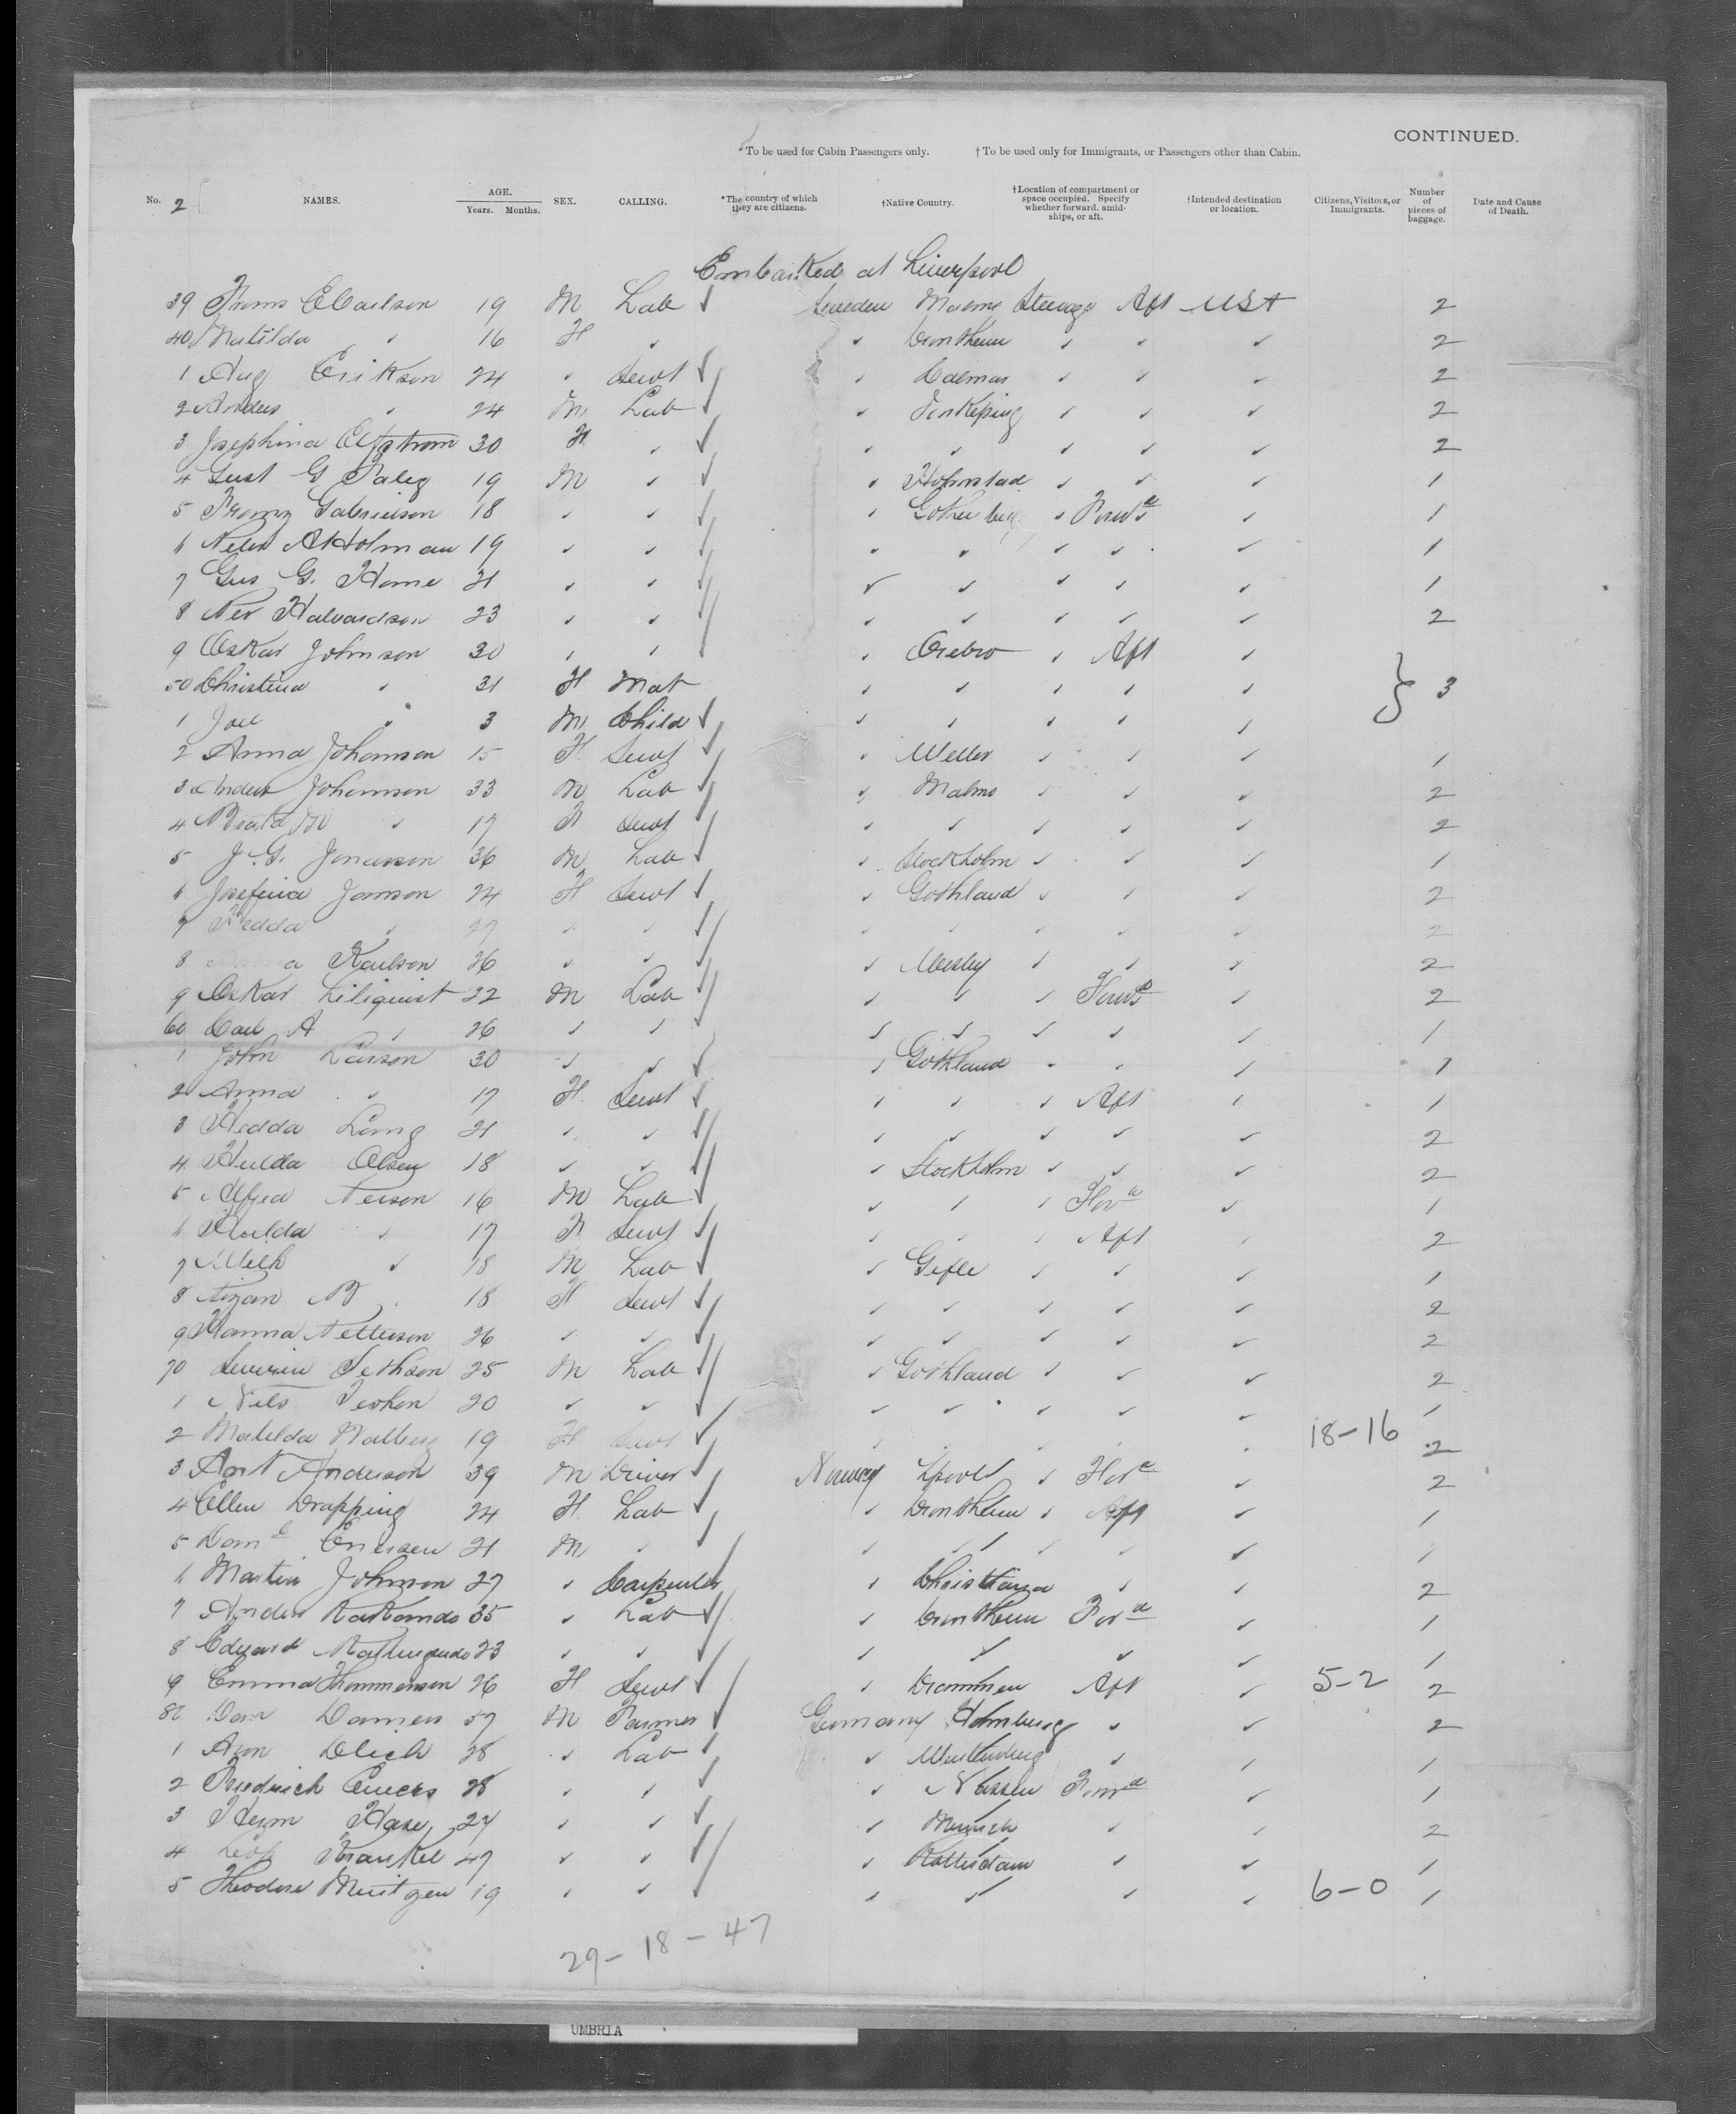 CONTINUED.
*To be used for Cabin Passengers only. †To be used only for Immigrants, or Passengers other than Cabin.
No. 2 NAMES. AGE. Years. Months. SEX. CALLING. *The country of which they are citizens. †Native Country. †Location of compartment or space occupied. Specify whether forward, amidships, or aft. †Intended destination or location. Citizens, Visitors, or Immigrants. Number of pieces of baggage. Date and Cause of Death.
Embarked at Liverpool
39 19 M Lab ✓ Sweden Malmo Steerage Aft USA 2
40 Matilda " 16 F " " Drontheim " " " 2
1 Aug Erikson 24 " Servt ✓ " Calmar " " " 2
2 Anders " 24 M Lab ✓ " Jonkeping " " " 2
3 Josephina Elfstrom 30 F " ✓ " " " " " 2
4 Gust G 19 M " ✓ " Holmstad " " " 1
5 Gabrielson 18 " " ✓ " Gothenberg " Forwd " 1
6 A Holman 19 " " ✓ " " " " " 1
7 Gus G. Horne 21 " " ✓ " " " " " 1
8 Halvardson 23 " " ✓ " " " " " 2
9 Oskar Johnson 30 " " ✓ " Orebro " Aft "
50 Christina " 31 F Mat " " " " " } 3
1 Joel " 3 M Child ✓ " " " " "
2 Anna Johanson 15 F Servt ✓ " " " " 1
3 Anders Johannson 33 M Lab ✓ " Malmo " " " 2
4 M " 17 F Servt ✓ " " " " " 2
5 J. G. Jonasson 36 M Lab ✓ " Stockholm " " " 1
6 Josefina Jonson 24 F Servt ✓ " Gothland " " " 2
7 Hedda " 27 " " ✓ " " " " " 2
8 Karlson 26 " " ✓ " " " " 2
9 Oskar Liliquist 32 M Lab ✓ " " " Forwd " 2
60 Carl A " 26 " " ✓ " " " " " 1
1 John Larson 30 " " ✓ " Gothland " " " 1
2 Anna " 17 F Servt ✓ " " " Aft " 1
3 Hedda Ling 21 " " ✓ " " " " " 2
4 Hulda Olsen 18 " " ✓ " Stockholm " " " 2
5 Alfred 16 M Lab ✓ " " " Ford " 1
6 Hulda " 17 F Servt ✓ " " " Aft " 2
7 " 18 M Lab ✓ " Gefle " " " 1
8 18 F Servt ✓ " " " " " 2
9 Hanna Petterson 26 " " ✓ " " " " " 2
70 Severin Sethson 25 M Lab ✓ " Gothland " " " 2
1 Nels 20 " " ✓ " " " " " 1
2 Matilda Walberg 19 F Servt ✓ " " " " " 18-16 2
3 Anderson 39 M Driver ✓ Norway " Ford " 2
4 Ellen Drapping 24 F Lab ✓ " Drontheim " Aft " 1
5 Ericsen 21 M " ✓ " " " " " 1
6 Martin Johnson 27 " Carpenter ✓ " Christiania " " 2
7 Anders 35 " Lab ✓ " Drontheim Ford " 1
8 Edvard 23 " " ✓ " " " " 1
9 Emma Thommerson 26 F Servt ✓ " Drammen Aft " 5-2 2
80 Damien 57 M Farmer ✓ Germany Hamburg " " 2
1 Blech 28 " Lab ✓ " Wurtemberg " " 1
2 Friedrich 28 " " ✓ " Nassau Forwd " 1
3 Herm Hase 27 " " ✓ " Munich " " 2
4 Leop Krankel 47 " " ✓ " Rotterdam " " 1
5 Theodore Meritgen 19 " " ✓ " " " " 6-0 1
29-18-47
UMBRIA